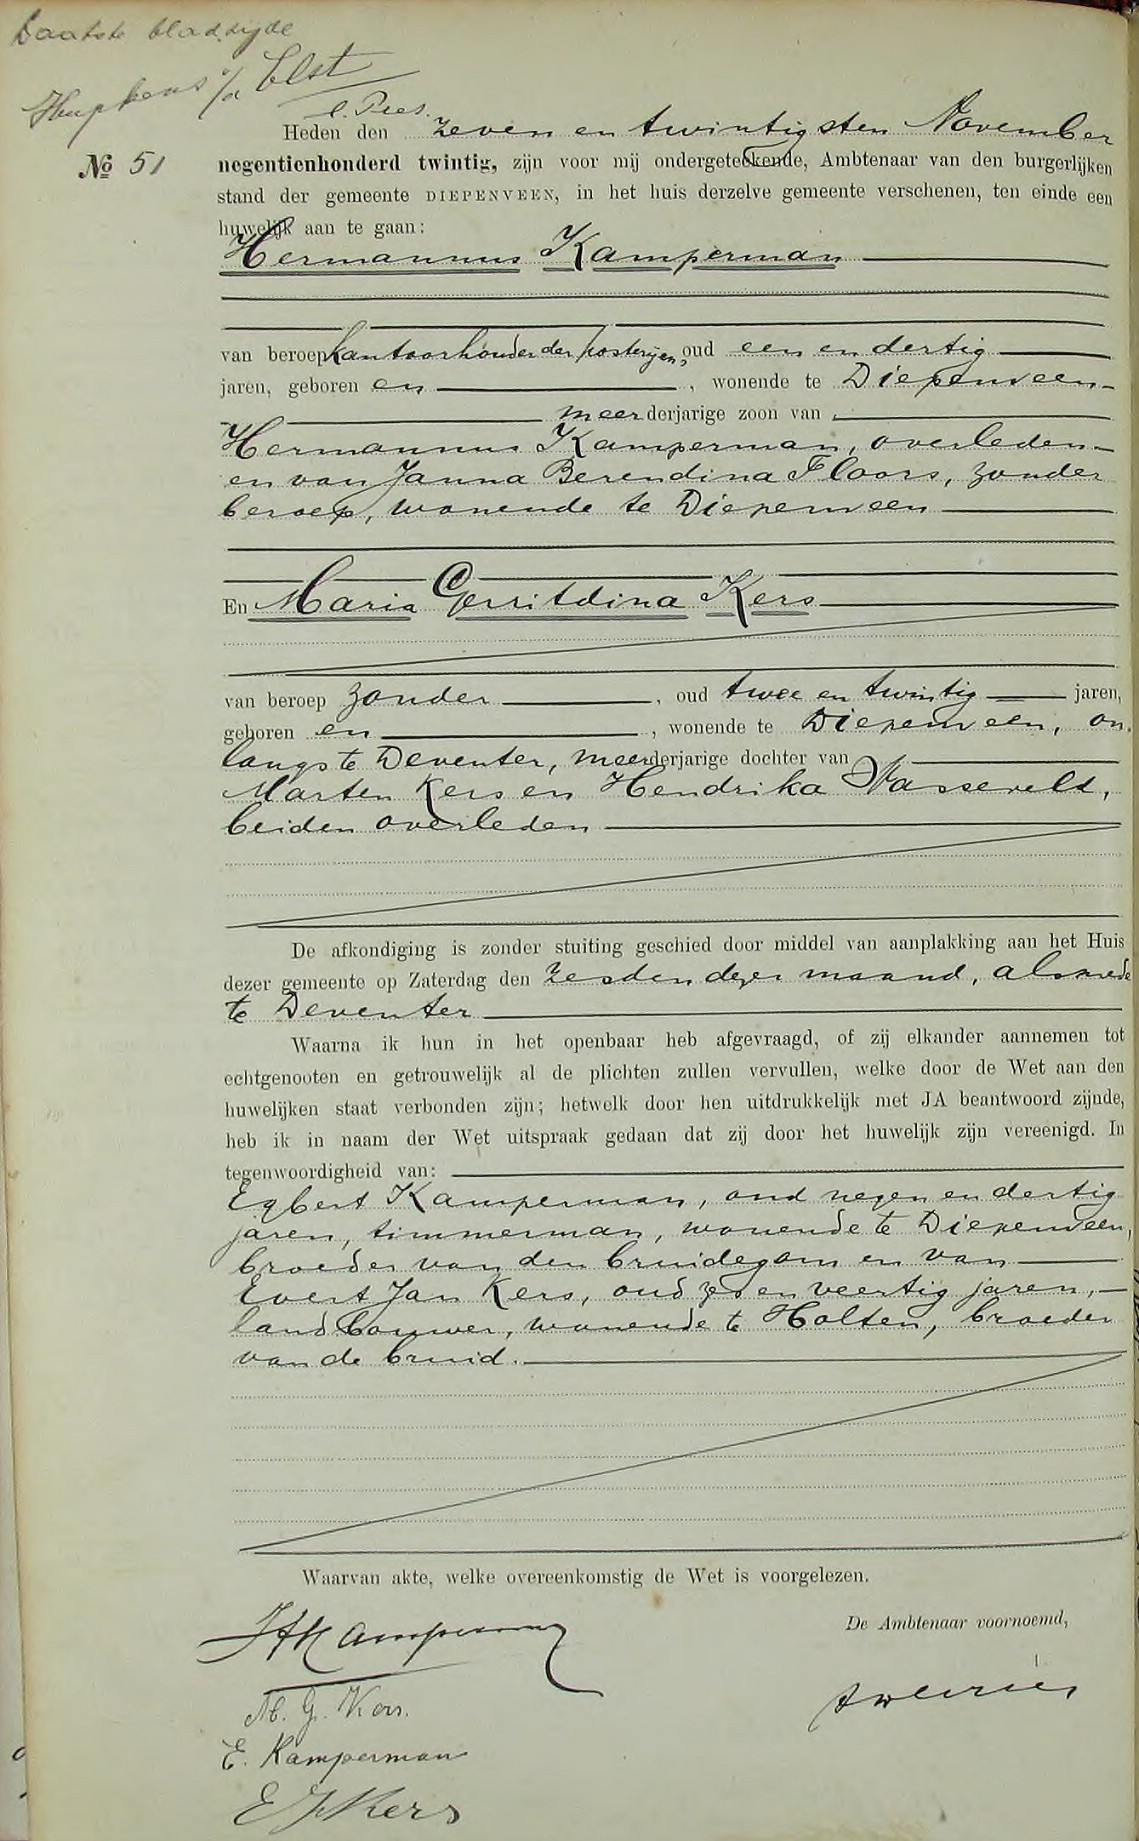 Laatste bladzijde
Hupkens v/d Elst
l. Pres.
Heden den zeven en twintigsten November
No 51
negentienhonderd twintig, zijn voor mij ondergeteekende, Ambtenaar van den burgerlijken
stand der gemeente DIEPENVEEN, in het huis derzelve gemeente verschenen, ten einde een
huwelijk aan te gaan:
Hermannus Kamperman
van beroep kantoorhouder der posterijen, oud een en dertig
jaren, geboren en , wonende te Diepenveen
meerderjarige zoon van
Hermannus Kamperman, overleden
en van Janna Berendina Floors, zonder
beroep, wonende te Diepenveen
En Maria Gerritdina Kers
van beroep zonder , oud twee en twintig jaren,
geboren en , wonende te Diepenveen, on
langs te Deventer, meerderjarige dochter van
Marten Kers en Hendrika Wassevelt,
beiden overleden
De afkondiging is zonder stuiting geschied door middel van aanplakking aan het Huis
dezer gemeente op Zaterdag den zesden dezer maand, alsmede
te Deventer
Waarna ik hun in het openbaar heb afgevraagd, of zij elkander aannemen tot
echtgenooten en getrouwelijk al de plichten zullen vervullen, welke door de Wet aan den
huwelijken staat verbonden zijn; hetwelk door hen uitdrukkelijk met JA beantwoord zijnde,
heb ik in naam der Wet uitspraak gedaan dat zij door het huwelijk zijn vereenigd. In
tegenwoordigheid van:
Egbert Kamperman, oud negen en dertig
jaren, timmerman, wonende te Diepenveen,
broeder van den bruidegom en van
Evert Jan Kers, oud zes en veertig jaren,
landbouwer, wonende te Holten, broeder
van de bruid.
Waarvan akte, welke overeenkomstig de Wet is voorgelezen.
De Ambtenaar voornoemd,
HKamperman
M. G. Kers.
E. Kamperman
E J Kers